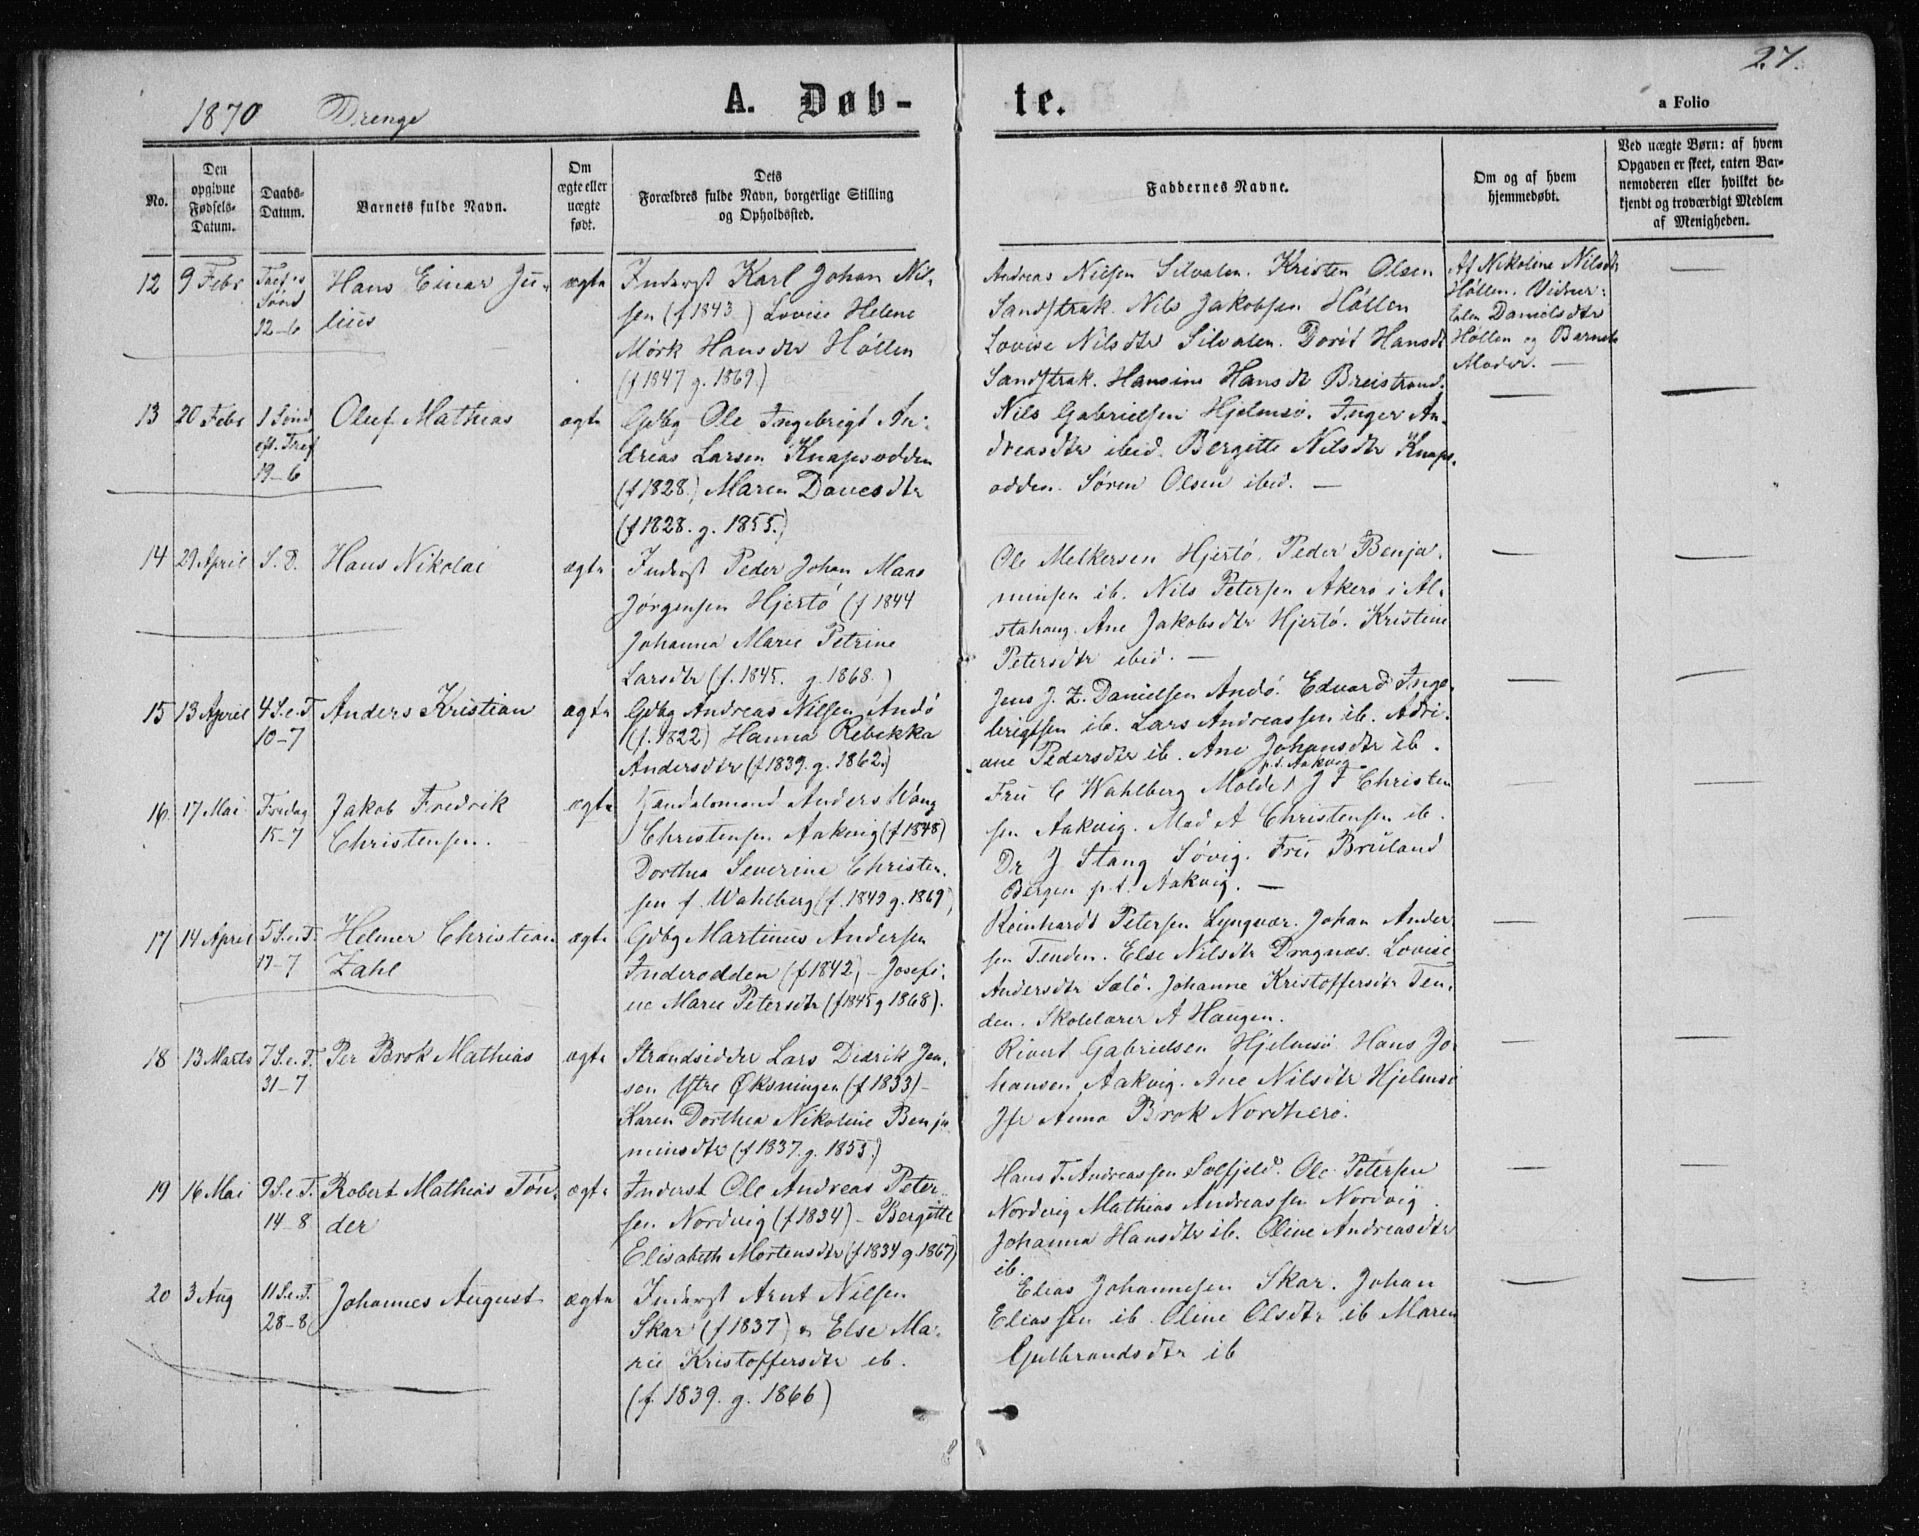 27.
1870 Drenge
A. Døb-
te.
a Folio
No.
Den
opgivne
Fødsels-
Datum.
Daabs-
Datum.
Barnets fulde Navn.
Om
ægte eller
uægte
født.
Dets
Forældres fulde Navn, borgerlige Stilling
og Opholdssted.
Faddernes Navne.
Om og af hvem
hjemmedøbt.
Ved uægte Børn: af hvem
Opgaven er skeet, enten Bar-
nemoderen eller hvilket be-
kjendt og troværdigt Medlem
af Menigheden.
12
9 Febr
Tref.s
Sønd
12-6
Hans Einar Ju-
lius
ægte
Inderst Karl Johan Nil-
sen (f 1843.) Lovise Helene
Mørk Hansdtr Høllen
(f 1847 g. 1869.)
Andreas Nilsen Silvalen. Kristen Olsen
Sandstrak. Nils Jakobsen Høllen
Lovise Nilsdtr Silvalen. Dorit Hansdt
Sandstrak. Hansine Hansdt Breistrand.
Af Nikoline Nilsdtr
Høllen. Vidner:
Danielsdtr
Høllen og Barnets
Moder. —
13
20 Febr
1 Sønd
eft. Tref
19-6
Oluf Mathias
ægte
Gdbg Ole Ingebrigt An-
dreas Larsen Knapsodden
(f 1828.) Maren Danesdtr
(f 1828. g. 1855.)
Nils Gabrielsen Hjelmsø. Inger An-
dreasdtr ibid. Bergitte Nilsdtr Knaps-
odden. Søren Olsen ibid. —
14
29 April
S. D.
Hans Nikolai
ægte
Inderst Peder Johan Maas
Jørgensen Hjertø (f 1844
Johanna Marie Petrine
Larsdtr (f. 1845. g. 1868.)
Ole Melkersen Hjertø. Peder Benja-
minsen ib. Nils Petersen Akerø i Al-
stahaug. Ane Jakobsdtr Hjertø. Kristine
Petersdtr ibid. —
15
13 April
4 S. e. T
10-7
Anders Kristian
ægte
Gdbg Andreas Nilsen Andø
(f. 1822) Hanna Rebekka
Andersdtr (f 1839. g. 1862.)
Jens J. Z. Danielsen Andø. Edvard Inge-
brigtsen ib. Lars Andreassen ib. Adri-
ane Pedersdtr ib. Ane Johansdtr ib.
16
17 Mai
Fredag
15-7
Jakob Fredrik
Christensen.
ægte
Handelsmand Anders Wang
Christensen Aakvig (f 1848)
Dorthea Severine Christen-
sen f. Wahlberg (f. 1849 g. 1869)
p.t. Aakvig
Fru C Wahlberg Molde J F Christen
sen Aakvig. Mad A Christensen ib.
Dr J Stang Søvig. Fru Bruland
Bergen p.t. Aakvig. —
17
14 April
5 S. e. T.
17-7
Helmer Christian
Zahl
ægte
Gdbg Martinus Andersen
Inderodden (f 1842) - Josefi-
ne Marie Petersdtr (f 1845 g 1868).
Reinhardt Petersen Lyngvær. Johan Ander
sen Tenden. Else Nilsdtr Dragnæs. Lovise
Andersdtr Salø. Johanne Kristoffersdtr Ten-
den. Skolelærer A Haugen.
18
13 Marts
7 S. e. T.
31-7
Per Brok Mathias
ægte
Strandsidder Lars Didrik Jen-
sen Ytre Øksningen (f 1833) -
Karen Dorthea Nikoline Benja-
minsdtr (f 1837. g. 1855.)
Rivert Gabrielsen Hjelmsø Hans Jo
hansen Aakvig. Ane Nilsdtr Hjelmsø
Jfr Anna Brok Nordherø.
19
16 Mai
9 S. e. T.
14-8
Robert Mathias Tøn-
der
ægte
Inderst Ole Andreas Peter-
sen Nordvig (f 1834) - Bergitte
Elisabeth Mortensdtr (f 1834 g. 1867)
Hans T. Andreassen Solfjeld. Ole Petersen
Nordvig Mathias Andreassen Nordvig.
Johanna Hansdtr ib. Oline Andreasdtr
ib.
20
3 Aug
11 S. e. T.
28-8
Johannes August
ægte
Inderst Arnt Nilsen
Skar (f 1837) & Else Ma-
rie Kristoffersdtr ib.
(f. 1839. g. 1866)
Elias Johannesen Skar. Johan
Eliassen ib. Oline Olsdtr ib Maren
Gulbrandsdtr ib